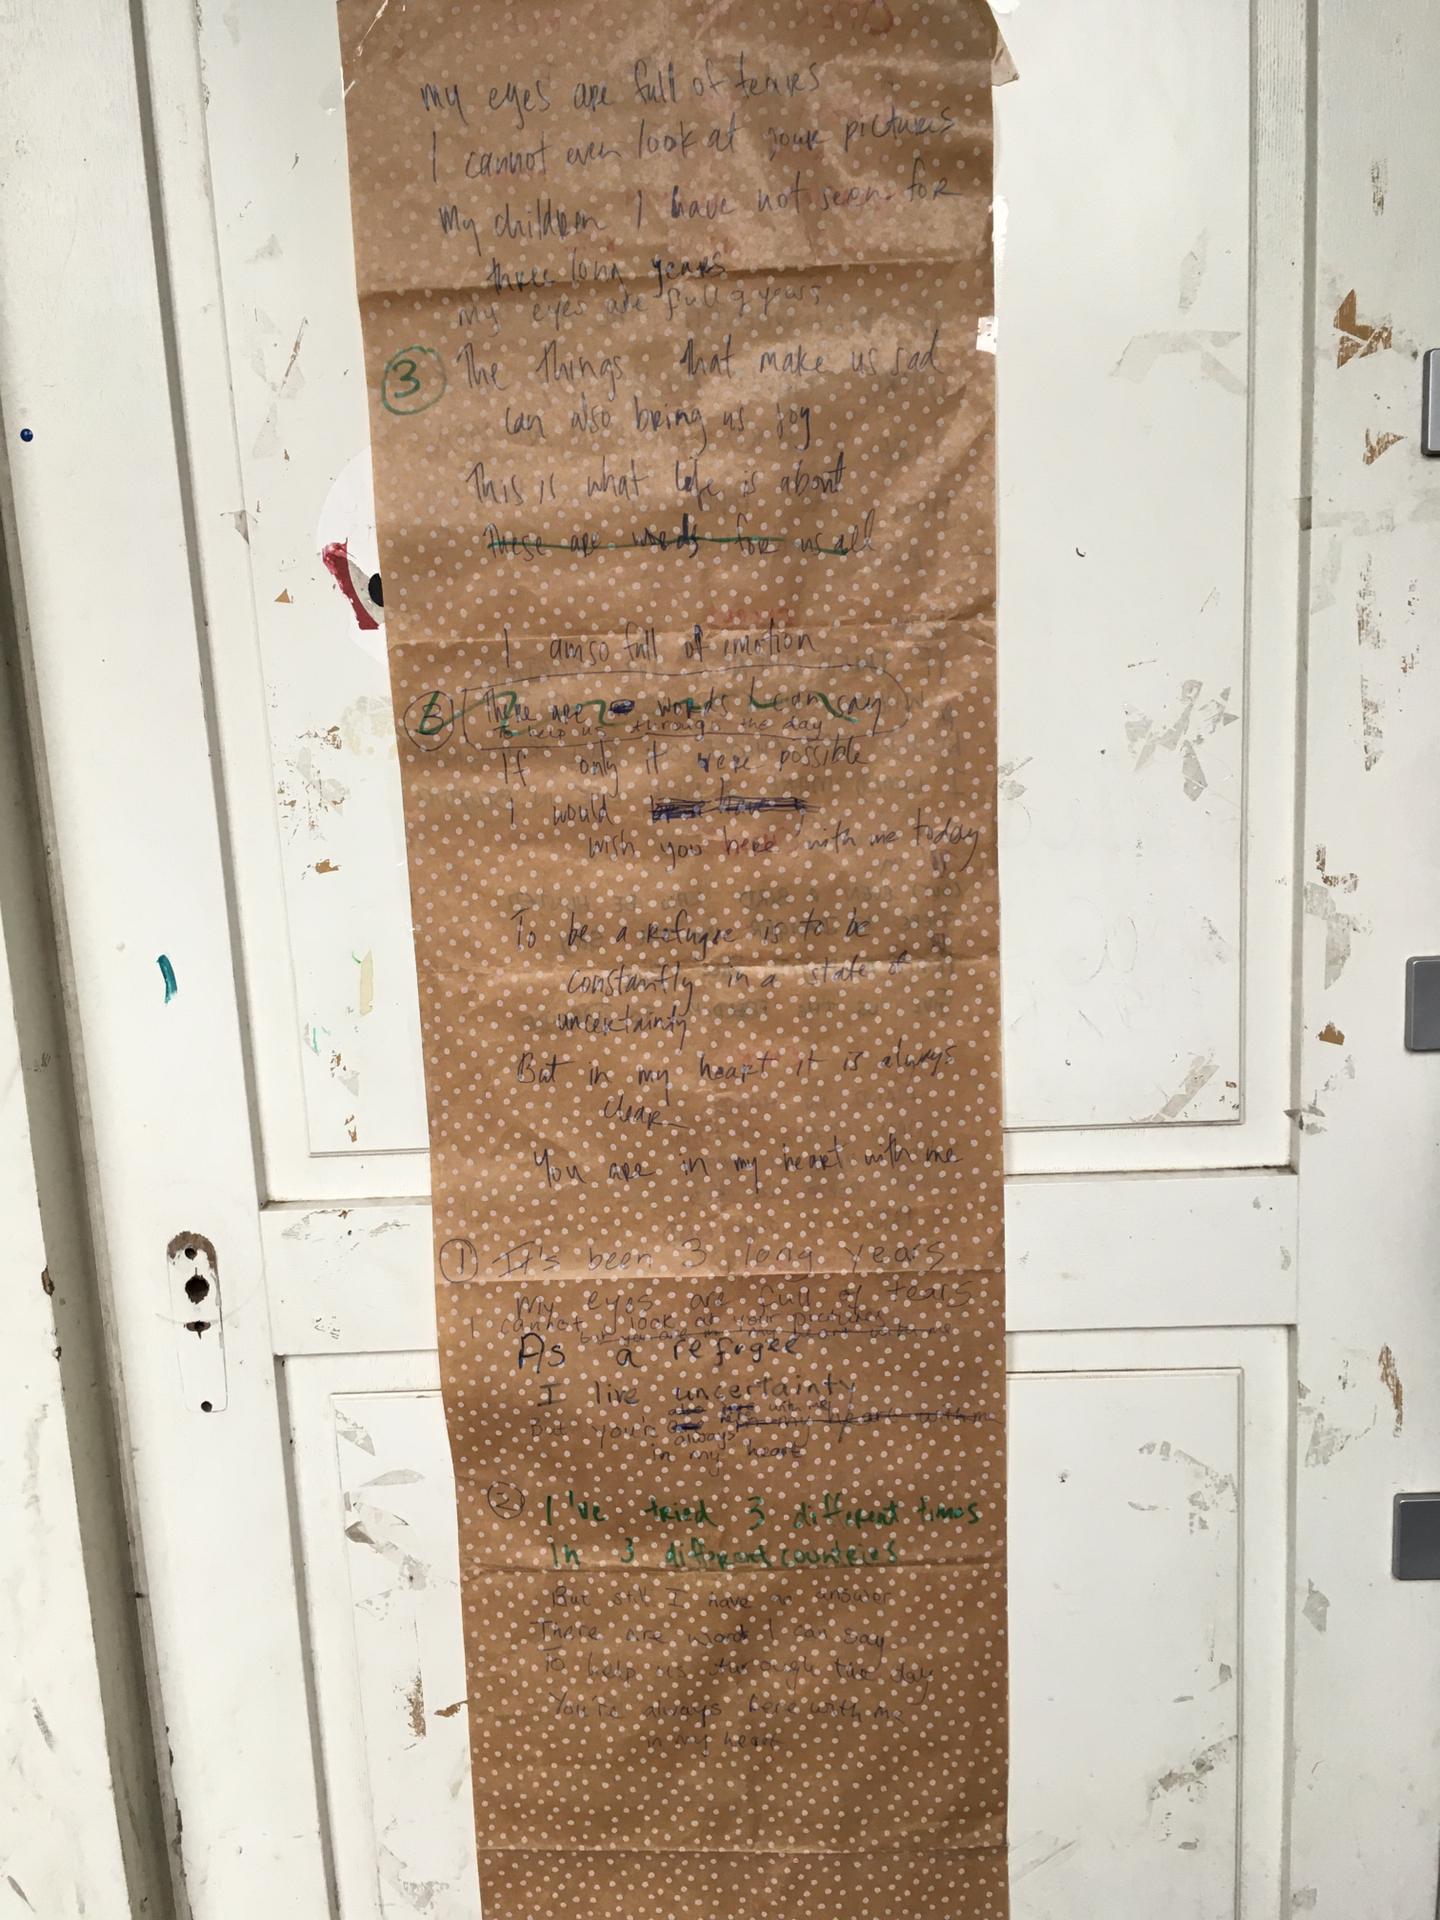 my eyes are full of tears
I cannot even look at your pictures
My children I have not seen for
three long years
my eyes are full of years
3 The things that make us sad
can also bring us joy
This is what life is about
These are words for us all
I am so full of emotion
There are words I can say
To help us through the day
If only it were possible
I would
wish you here with me today
To be a refugee is to be
constantly in a state of
uncertainty
But in my heart it is always
clear
You are in my heart with me
1 It's been 3 long years
My eyes are full of tears
I cannot look at your pictures
but you are in my heart with me
As a refugee
I live uncertainty
with me
But you're here in my heart with me
always
in my heart
2 I've tried 3 different times
in 3 different countries
But still I have an answer
There are words I can say
To help us through the day
You're always here with me
in my heart